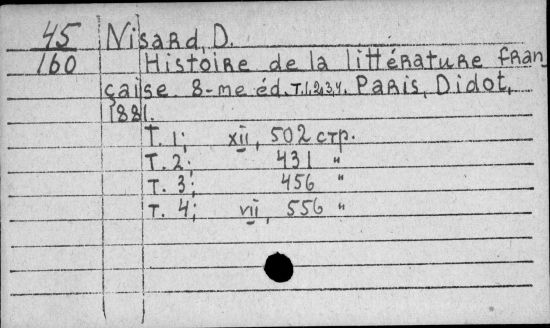 45
160
Nisard, D.
Histoire de la littérature fran
çaise. 8-me éd. T.1,2,3,4. Paris, Didot,
1881.
T. 1; xii, 502 стр.
T. 2; 431 "
T. 3; 456 "
T. 4; vii, 556 "